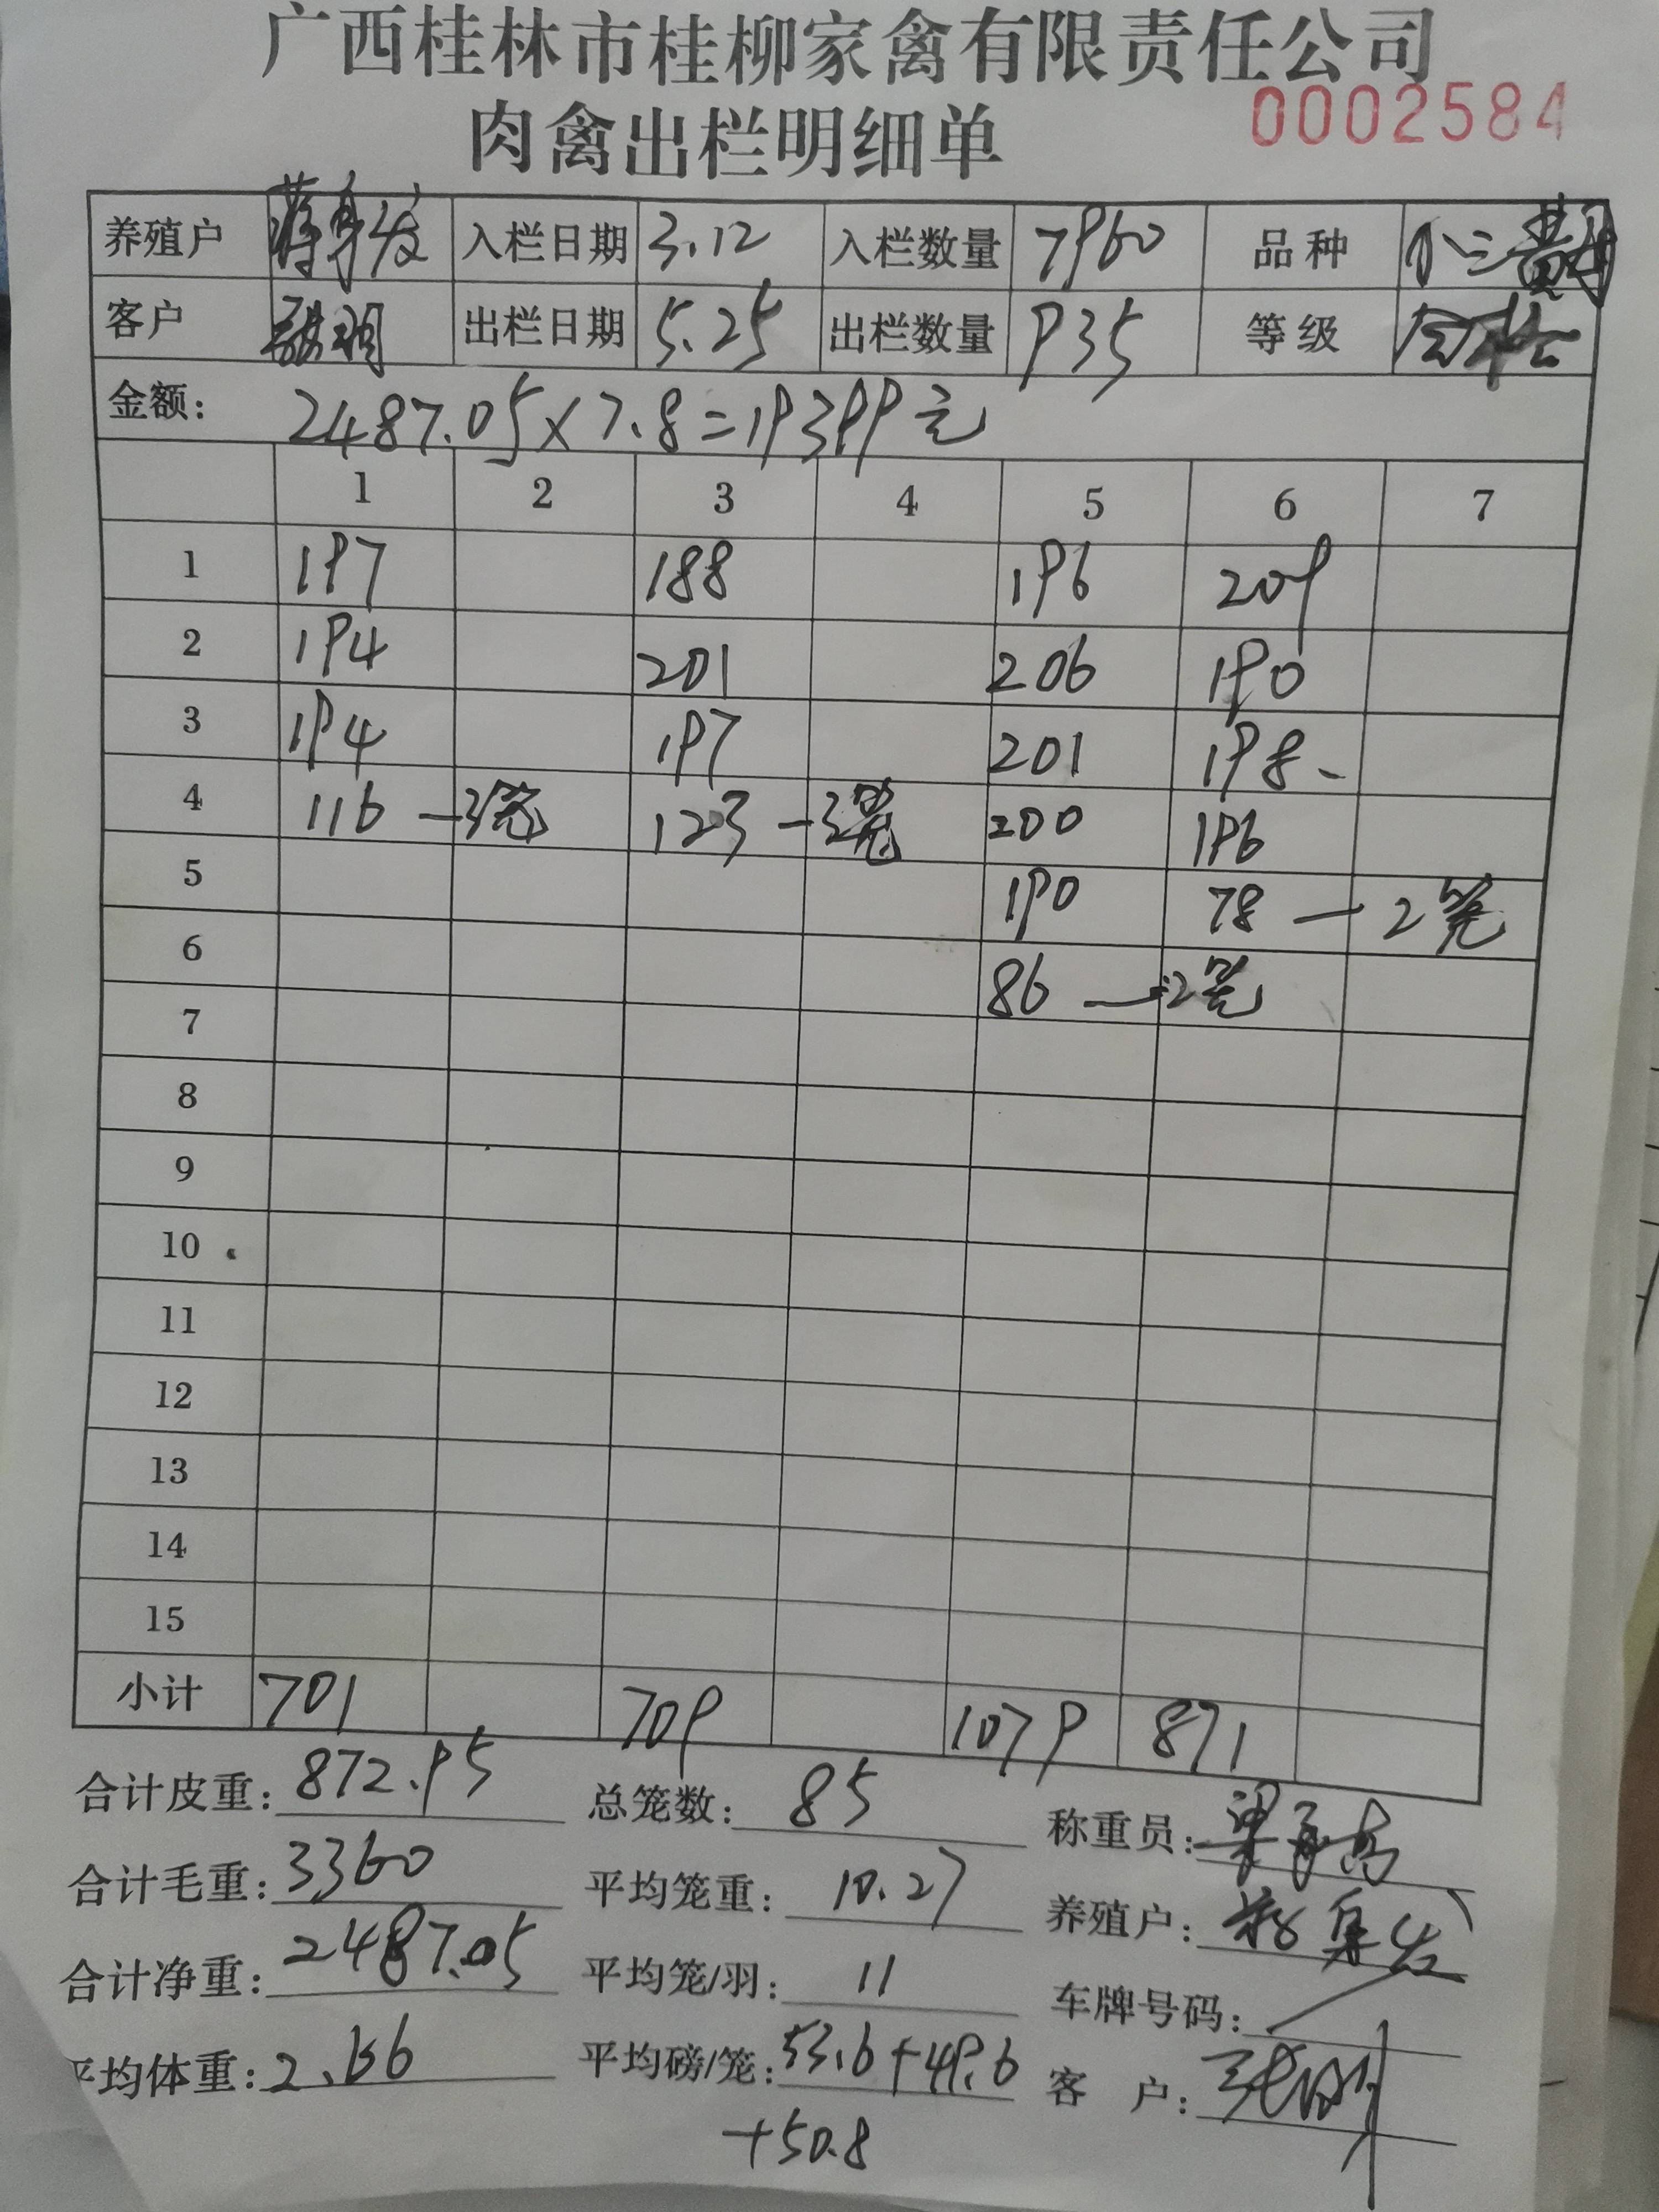 广西桂林市桂柳家禽有限责任公司
肉禽出栏明细单 0002584
养殖户 入栏日期 3.12 入栏数量 7960 品种 小三黄
客户 张明 出栏日期 5.25 出栏数量 935 等级 合格
金额: 2487.05×7.8=19399元
1 2 3 4 5 6 7
1 197 188 196 209
2 194 201 206 190
3 194 197 201 198
4 116 —3笼 123 —3笼 200 196
5 190 78 —2笼
6 86 —2笼
7
8
9
10
11
12
13
14
15
小计 701 709 1079 871
合计皮重: 872.95 总笼数: 85 称重员:
合计毛重: 3360 平均笼重: 10.27 养殖户:
合计净重: 2487.05 平均笼/羽: 11 车牌号码:
平均体重: 2.66 平均磅/笼: 53.6+49.6 客 户: 张明
+50.8